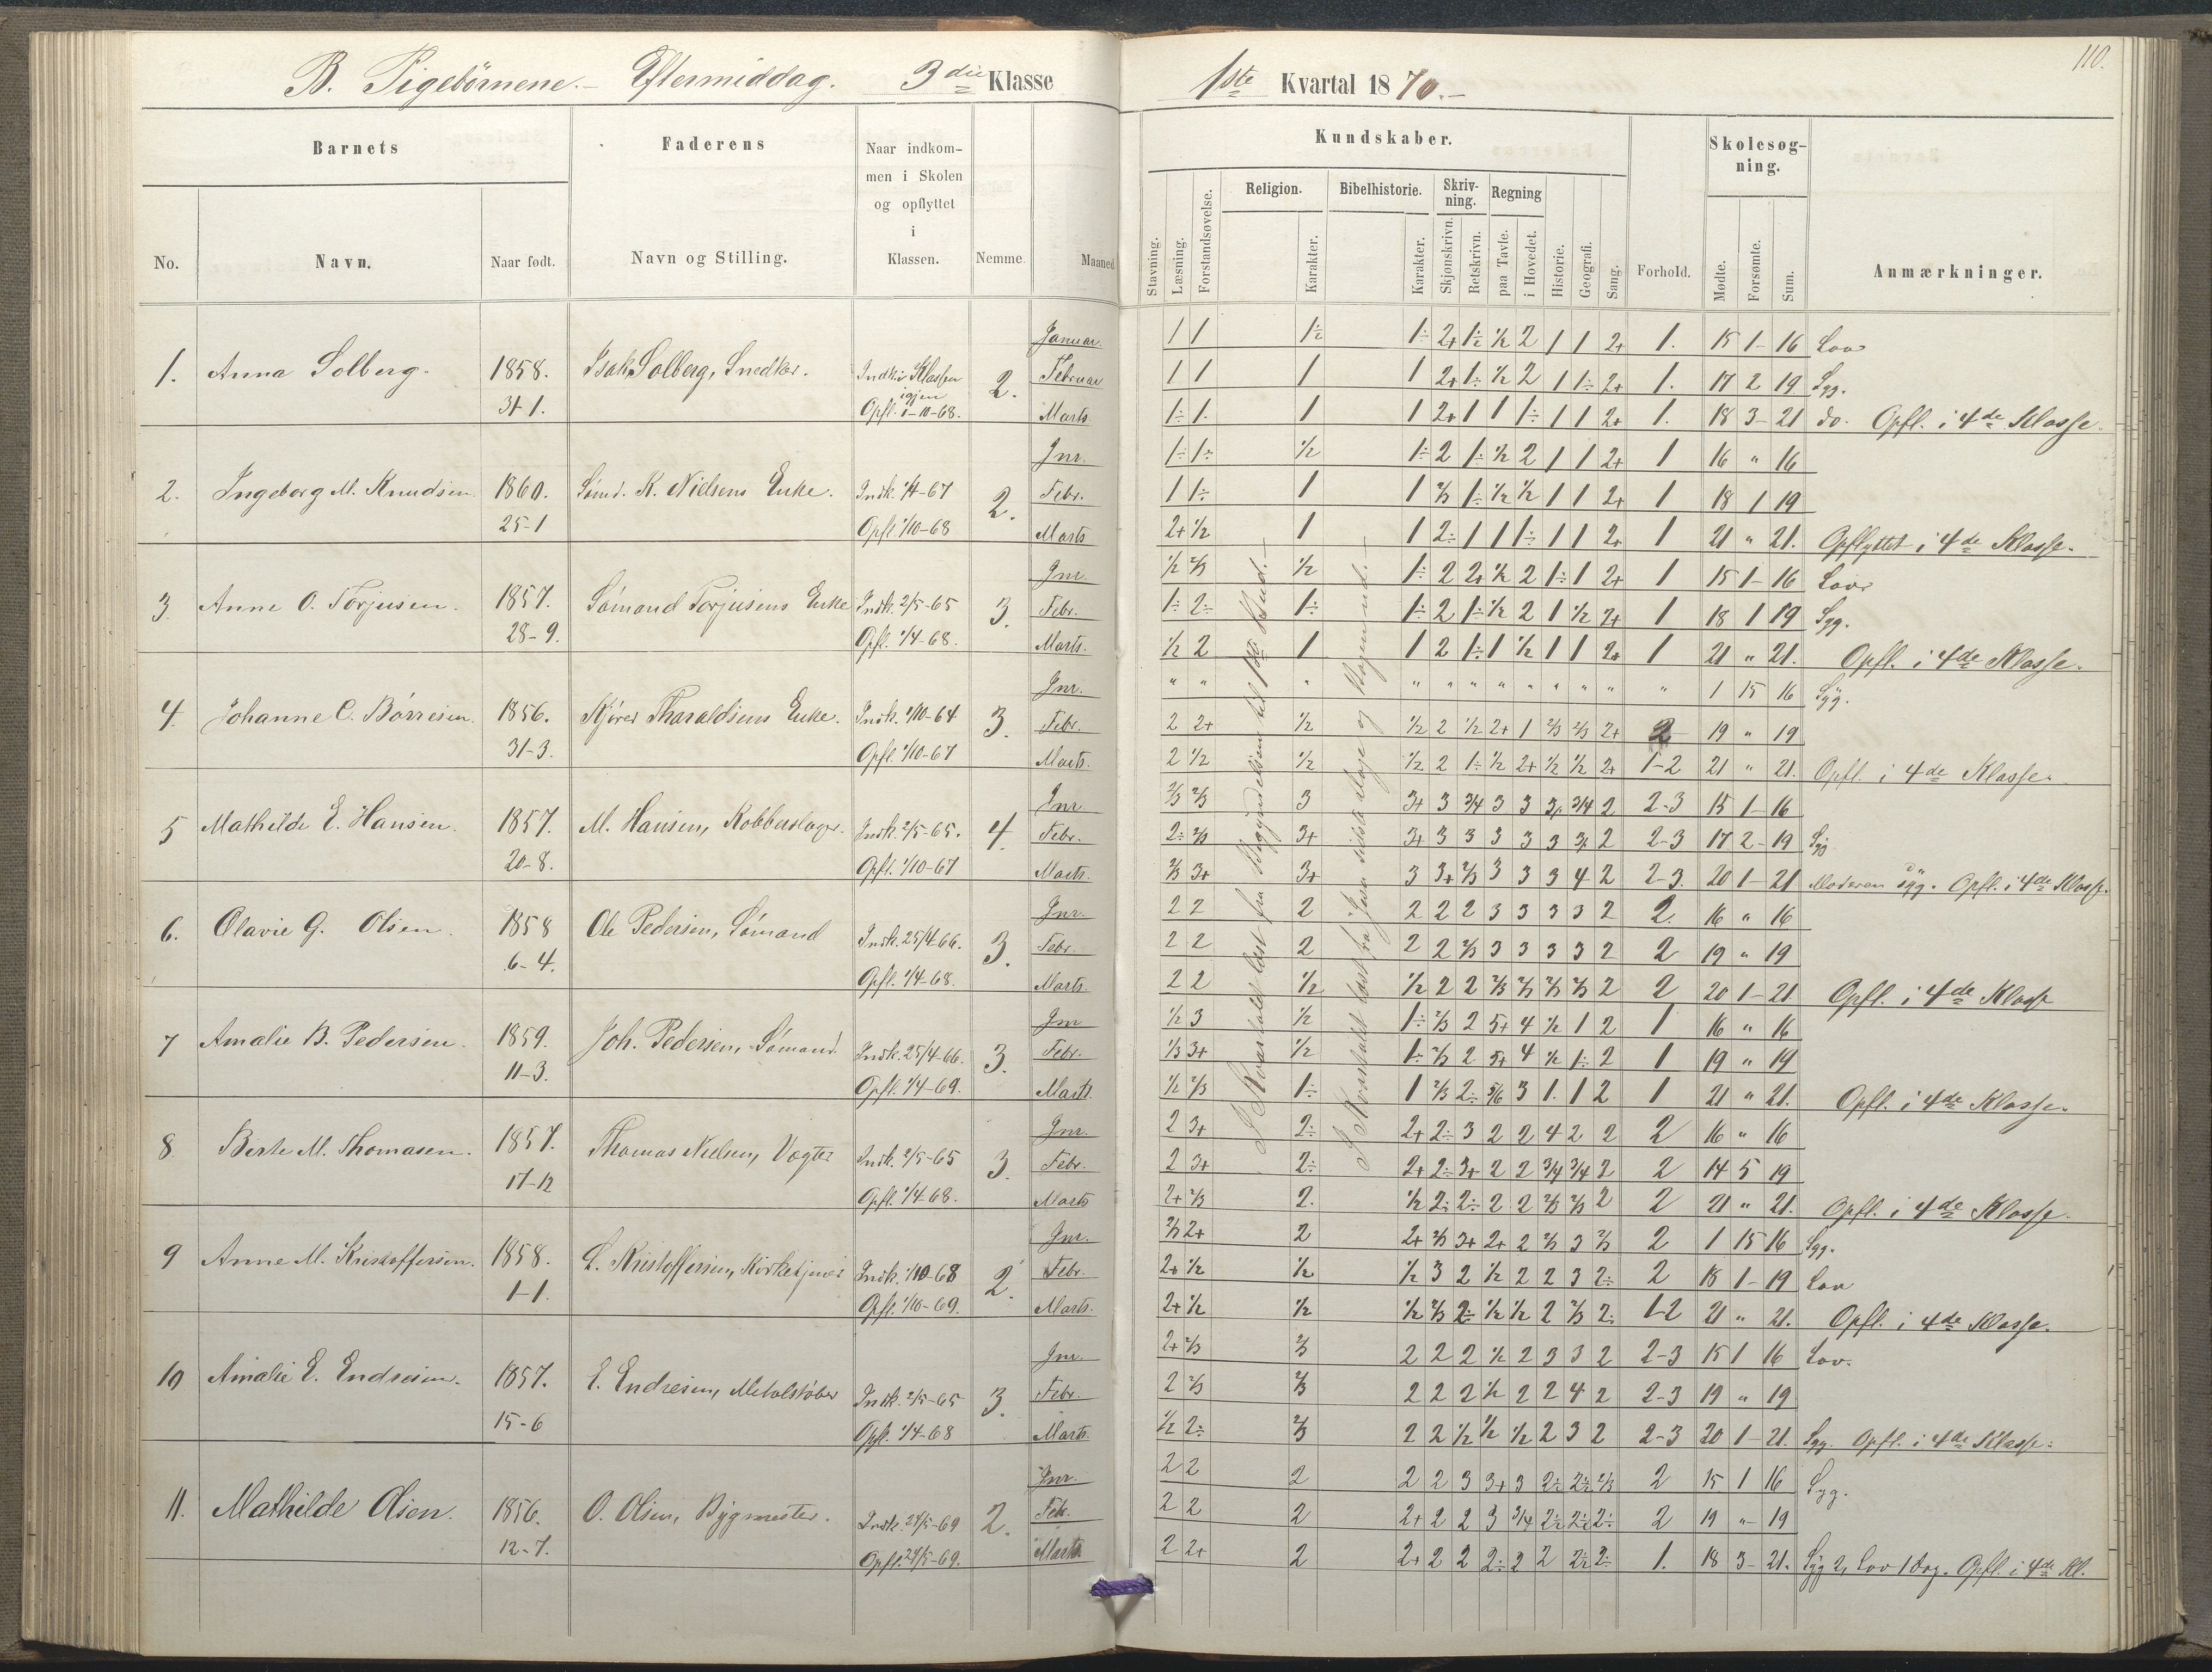 110.
B. Pigebørnene. - Eftermiddag. 3die Klasse 1ste Kvartal 1870.-
Barnets Faderens Naar indkommen i Skolen og opflyttet i Klassen. Nemme. Maaned Kundskaber. Forhold. Skolesøgning. Anmærkninger.
No. Navn. Naar født. Navn og Stilling.
Stavning. Læsning. Forstandsøvelse. Religion. Karakter. Bibelhistorie. Karakter. Skrivning. Skjønskrivn. Retskrivn. Regning paa Tavle. i Hovedet. Historie. Geografi. Sang. Mødte. Forsømte. Sum.
1. Anna Solberg. 1858. 31-1. Isak Solberg, Snedker. Indk. i Klassen igjen Opfl. 1-10-68. 2.
Januar. 1 1 1. 15 1 - 16 Lov
Februar 1 1 1 1. 17 2 19 Syg.
Marts 1÷ 1. 1 1 2+ 1 1 1÷ 1 1 2+ 1. 18 3 - 21 do. Opfl. i 4de Klasse.
2. Ingeborg M. Knudsen 1860. 25-1 Sømd. K. Nielsens Enke. Indk. 1/4-67 Opfl. 1/10-68 2.
Jnr. 1÷ 1÷ 1/2 1÷ 2 1÷ 1/2 2 1 1 2+ 1 16 " 16
Febr. 1 1÷ 1 1 2/3 1÷ 1/2 1/2 1 1 2+ 1 18 1 19
Marts 2+ 1/2 1 1 2÷ 1 1 1÷ 1 1 2+ 1 21 " 21. Opflyttet i 4de Klasse.
3 Anne O. Torjusen. 1857. 28-9. Sømand Torjusens Enke Indk. 2/5-65 Opfl. 1/4-68. 3.
Jnr. 1/2 2/3 1/2 1÷ 2 2+ 1/2 2 1÷ 1 2+ 1 15 1 - 16 Lov
Febr. 1÷ 2÷ 1÷ 1÷ 2 1÷ 1/2 2 1 1/2 2+ 1 18 1 19 Syg.
Marts. 1/2 2 1 1 2 1÷ 1 1/2 1 1 2+ 1 21 " 21. Opfl. i 4de Klasse.
4. Johanne C. Børresen. 1856. 31-3. Kjører Tharaldsens Enke. Indk. 1/10-64 Opfl. 1/10-67 3.
Jnr. " " " " " " " " " " " " 1 15 16 Syg.
Febr. 2 2+ 1/2 1/2 2 1/2 2+ 1 2/3 2/3 2+ 2 19 " 19
Marts. 2 1/2 1/2 1/2 2 1÷ 1/2 2+ 1/2 1/2 2+ 1-2 21 " 21. Opfl. i 4de Klasse.
5 Mathilde E. Hansen. 1857. 20-8. M. Hansen, Kobberslager. Indk. 2/5-65. Opfl. 1/10-67 4.
Jnr. 2/3 2/3 3 3+ 3 3/4 3 3 3/4 2 2-3 15 1 - 16
Febr. 2÷ 2/3 3+ 3+ 3 3 3 3 3 2 2-3 17 2 - 19 Syg
Marts. 2/3 3+ 3+ 3 3+ 2/3 3 3 3 4 2 2-3. 20 1 - 21 Moderen syg. Opfl. i 4de Klasse.
6. Olavie G. Olsen. 1858 6-4. Ole Pedersen, Sømand Indk. 25/4-66. Opfl. 1/4-68. 3.
Jnr. 2 2 2 2 2 2 3 3 3 3 2 2. 16 " 16
Febr. 2 2 2 2 2 2/3 3 3 3 3 2 2 19 " 19
Marts. 2 2 1/2 1/2 2 2 2/3 2/3 2/3 2/3 2 2 20 1 - 21 Opfl. i 4de Klasse
7 Amalie B. Pedersen. 1859. 11-3. Joh. Pedersen, Sømand Indk. 25/4-66. Opfl. 1/4-69. 3.
Jnr 1/2 3 1/2 1÷ 2/3 2 5+ 4 1/2 1 2 1 16 " 16
Febr. 1/3 3+ 1/2 1÷ 2/3 2 5+ 4 1/2 1÷ 2 1 19 " 19
Marts. 1/2 2/3 1÷ 1 2/3 2÷ 5/6 3 1. 1 2 1 21 " 21. Opfl. i 4de Klasse.
8 Berte M. Thomasen. 1857. 17-12 Thomas Nielsen, Vægter Indk. 2/5-65 Opfl. 1/4-68. 3.
Jnr. 2 3+ 2÷ 2+ 2÷ 3 2 2 4 2 2 2 16 " 16
Febr. 2 3+ 2÷ 2+ 2÷ 3+ 2 2 3/4 3/4 2 2 14 5 19
Marts 2+ 2/3 2. 1/2 2÷ 2÷ 2 2 2/3 2/3 2 2 21 " 21. Opfl. i 4de Klasse.
9 Anne M. Kristoffersen. 1858. 1-1. L. Kristoffersen, Kirketjener Indk. 1/10-68 Opfl. 1/10-69. 2.
Jnr. 2/3 2+ 2 2+ 2/3 3+ 2+ 2 2/3 3 2/3 2 1 15 16 Syg.
Febr. 2+ 1/2 1/2 1/2 3 2 1/2 2 2 3 2÷ 2 18 1 - 19 Lov
Marts. 2+ 1/2 1/2 1/2 2/3 2÷ 1/2 1/2 2 2/3 2÷ 1-2 21 " 21. Opfl. i 4de Klasse.
10 Amalie E. Endresen. 1857. 15-6 E. Endresen, Metalstøber Indk. 2/5-65 Opfl. 1/4-68 3.
Jnr. 2+ 2/3 2/3 2 2 2 1/2 2 3 3 2 2-3 15 1 16 Lov.
Febr. 2 2/3 2/3 2 2 2 1/2 2 2 4 2 2-3 19 " 19
Marts. 1/2 2÷ 2/3 2 2 1/2 1/2 1/2 2 3 2 2-3 20 1 - 21. Syg. Opfl. i 4de Klasse.
11. Mathilde Olsen. 1856. 12-7. O. Olsen, Bygmester. Indk. 24/5-69 Opfl. 24/5-69. 2.
Jnr. 2 2 2 2 2 3 3+ 3 2 15 1 16 Syg.
Feb. 2 2 2 2+ 2 2 3 3/4 2 19 " 19
Marts 2 2+ 2 2+ 2 2 2÷ 2 2 1. 18 3 - 21. Syg 2, Lov 1 Dag. Opfl. i 4de Kl.
I Kvartalet læst fra Begyndelsen til 1ste Bud.
I Kvartalet læst fra Jesu sidste Dage og